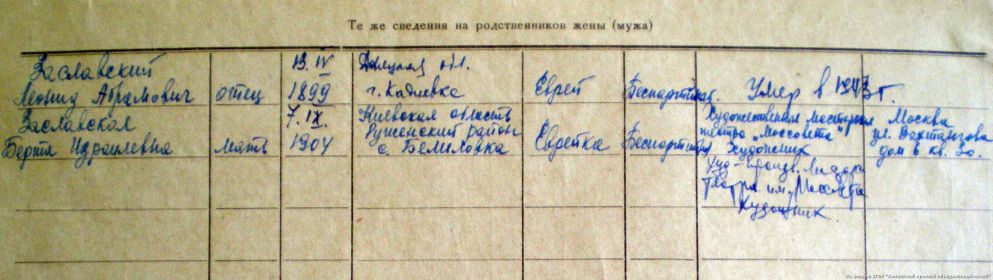 Те же сведения на родственников жены (мужа)
Заславский 13. IV Донецкая обл.
Леонид Абрамович отец 1899 г. Кадиевка Еврей Беспартийн. Умер в 1943 г.
Заславская 7. IX. Киевская область Художественные мастерские Москва
Берта Израилевна мать 1904 Ружинский район Еврейка Беспартийн театра Моссовета ул. Вахтангова
с. Белиловка Художник дом 6 кв. 20.
Худ-произв.
театра им. Моссовета
Художник.